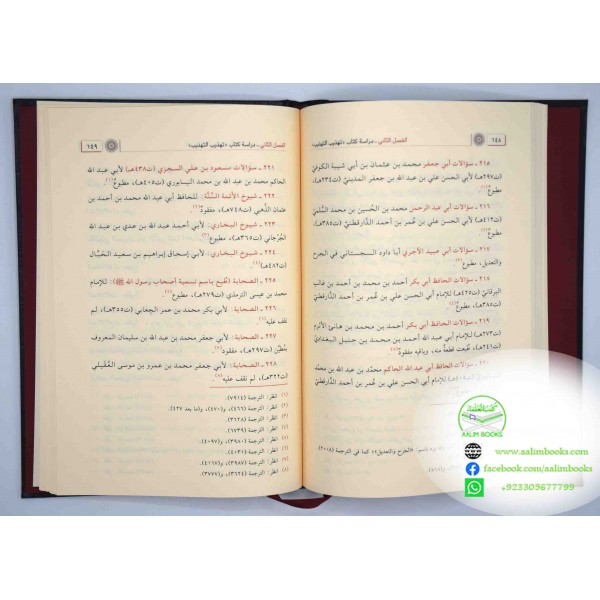 ١٤٨
الفصل الثاني ـ دراسة كتاب «تهذيب التهذيب»
٢١٥ ـ سؤالات أبي جعفر محمد بن عثمان بن أبي شيبة الكوفي
(ت٢٩٧هـ) لأبي الحسن علي بن عبد الله بن جعفر المديني (ت٢٣٤هـ)،
مطبوع
٢١٦ ـ سؤالات أبي عبد الرحمن محمد بن الحسين بن محمد السُّلمي
(ت٤١٢هـ) لأبي الحسن علي بن عُمر بن أحمد الدَّارقطني (ت٣٨٥هـ)،
مطبوع
٢١٧ ـ سؤالات أبي عبيد الآجري أبا داود السجستاني في الجرح
والتعديل، مطبوع
٢١٨ ـ سؤالات الحافظ أبي بكر أحمد بن محمد بن أحمد بن غالب
البرقاني (ت٤٢٥هـ) للإمام أبي الحسن علي بن عُمر بن أحمد الدَّارقطني
(ت٣٨٥هـ)، مطبوع
٢١٩ ـ سؤالات الحافظ أبي بكر أحمد بن محمد بن هانئ الأثرم
(ت٢٧٣هـ) للإمام أبي عبد الله أحمد بن محمد بن حنبل البغدادي
(ت٢٤١هـ)، طُبعت قطعة منه، وباقيه مفقود
٢٢٠ ـ سؤالات الحافظ أبي عبد الله الحاكم محمَّد بن عبد الله بن محمد
للإمام أبي الحسن علي بن عمر بن أحمد الدَّارقطني
باسم: «الجرح والتعديل»؛ كما في الترجمة
١٤٩
الفصل الثاني ـ دراسة كتاب «تهذيب التهذيب»
٢٢١ ـ سؤالات مسعود بن علي السجزي (ت٤٣٨هـ) لأبي عبد الله
الحاكم محمد بن عبد الله بن محمد النيسابوري (ت٤٠٥هـ)، مطبوع(١).
٢٢٢ ـ شيوخ الأئمة السُّتَّة: للحافظ أبي عبد الله محمد بن أحمد بن
عثمان الذَّهبي (ت٧٤٨هـ)، مفقود(٢).
٢٢٣ ـ شيوخ البخاري: لأبي أحمد عبد الله بن عدي بن عبد الله
الجُرْجاني (ت٣٦٥هـ)، مطبوع(٣).
٢٢٤ ـ شيوخ البخاري: لأبي إسحاق إبراهيم بن سعيد الحَبَّال
(ت٤٨٢هـ)(٤).
٢٢٥ ـ الصحابة (طُبع باسم تسمية أصحاب رسول الله ﷺ): للإمام
محمد بن عيسى الترمذي (ت٢٧٩هـ)، مطبوع(٥).
٢٢٦ ـ الصحابة: لأبي بكر محمد بن عمر الجعابي (ت٣٥٥هـ)، لم
نقف عليه(٦).
٢٢٧ ـ الصحابة: لأبي جعفر محمد بن عبد الله بن سليمان المعروف
بمُطَيَّن (ت٢٩٧هـ)، مفقود(٧).
٢٢٨ ـ الصحابة: لأبي جعفر محمد بن عمرو بن موسى العُقَيلي
(ت٣٢٢هـ)، لم نقف عليه(٨).
(١) انظر: الترجمة (٧٩١٤).
(٢) انظر: الترجمة (٤٦٦)، و(٤٧٠)، و(ما بعد ٤٢٧).
(٣) انظر: الترجمة (٣٦٢٨).
(٤) انظر: الترجمة (٦٧٣٩).
(٥) انظر: الترجمة (٣٩٨٠)، و(٤٠٩٧).
(٦) انظر: الترجمة (٤٠٣١).
(٧) انظر: الترجمة (٤١٦٧)، و(٤٠٩٧).
(٨) انظر: الترجمة (٣٦٢٤)، و(٣٧٧٧).
AALIM BOOKS
www.aalimbooks.com
facebook.com/aalimbooks
+923305677799